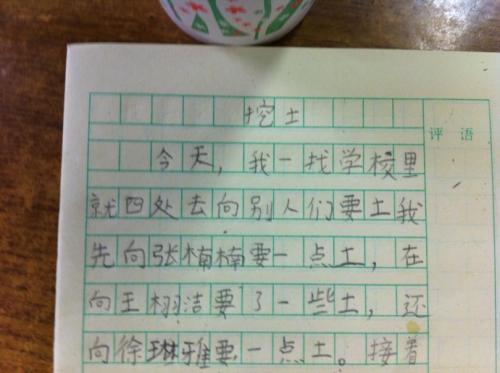 挖土
评语
今天，我一找学校里
就四处去向别人们要土我
先向张楠楠要一点土，在
向王栩洁要了一些土，还
向徐琳雅要一点土。接着